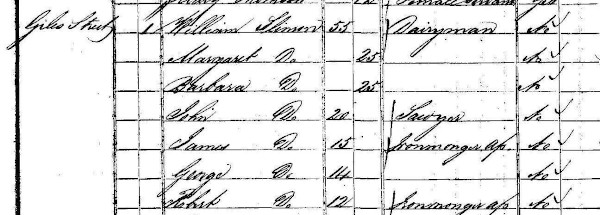 12 Female Servant
Giles Street 1 William Slimon 55 Dairyman No
Margaret Do 25 No
Barbara Do 25 No
John Do 20 Sawyer No
James Do 15 Ironmonger Ap. No
George Do 14 No
Robert Do 12 Ironmonger Ap No